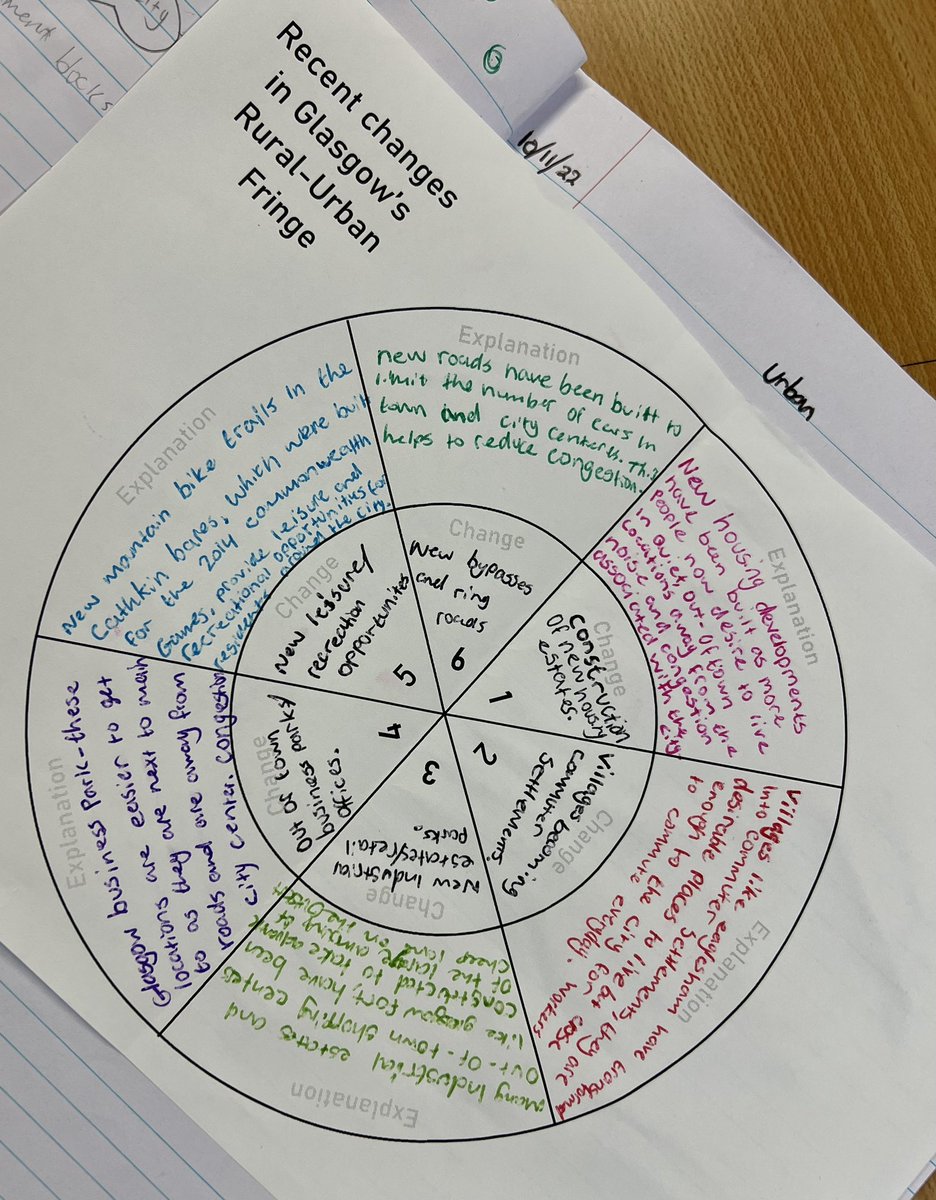 ment blocks
ity
6
10/11/22
urban
Recent changes
in Glasgow's
Rural-Urban
Fringe
Explanation
New housing developments
have been built as more
people now desire to live
in quiet, out-of town
locations away from the
noise and congestion
associated with the city
Change
Construction
of new housing
estates.
1
Explanation
Villages like eaglesham have transformed
into commuter settlements, they are
desirable places to live but close
enough to the city for workers
to commute everyday.
Change
Villages becoming
commuter
settlements.
2
Explanation
many industrial estates and
out-of-town shopping centres
like glasgow fort, have been
constructed to take
of the large amount of
cheap land on the
Change
New industrial
estates/retail
parks.
3
Explanation
Glasgow business Park - these
locations are easier to get
to as they are next to main
roads and are away from
city center. congestion
Change
Out of town
business parks/
offices.
4
Explanation
New mountain bike trails in the
Cathkin bares, which were built
for the 2014 commonwealth
Games, provide leisure and
recreational opportunities for
residents around the city.
Change
New leisure/
recreation
opportunites
5
Explanation
new roads have been built to
limit the number of cars in
town and city centers. This
helps to reduce congestion.
Change
New bypasses
and ring
roads
6